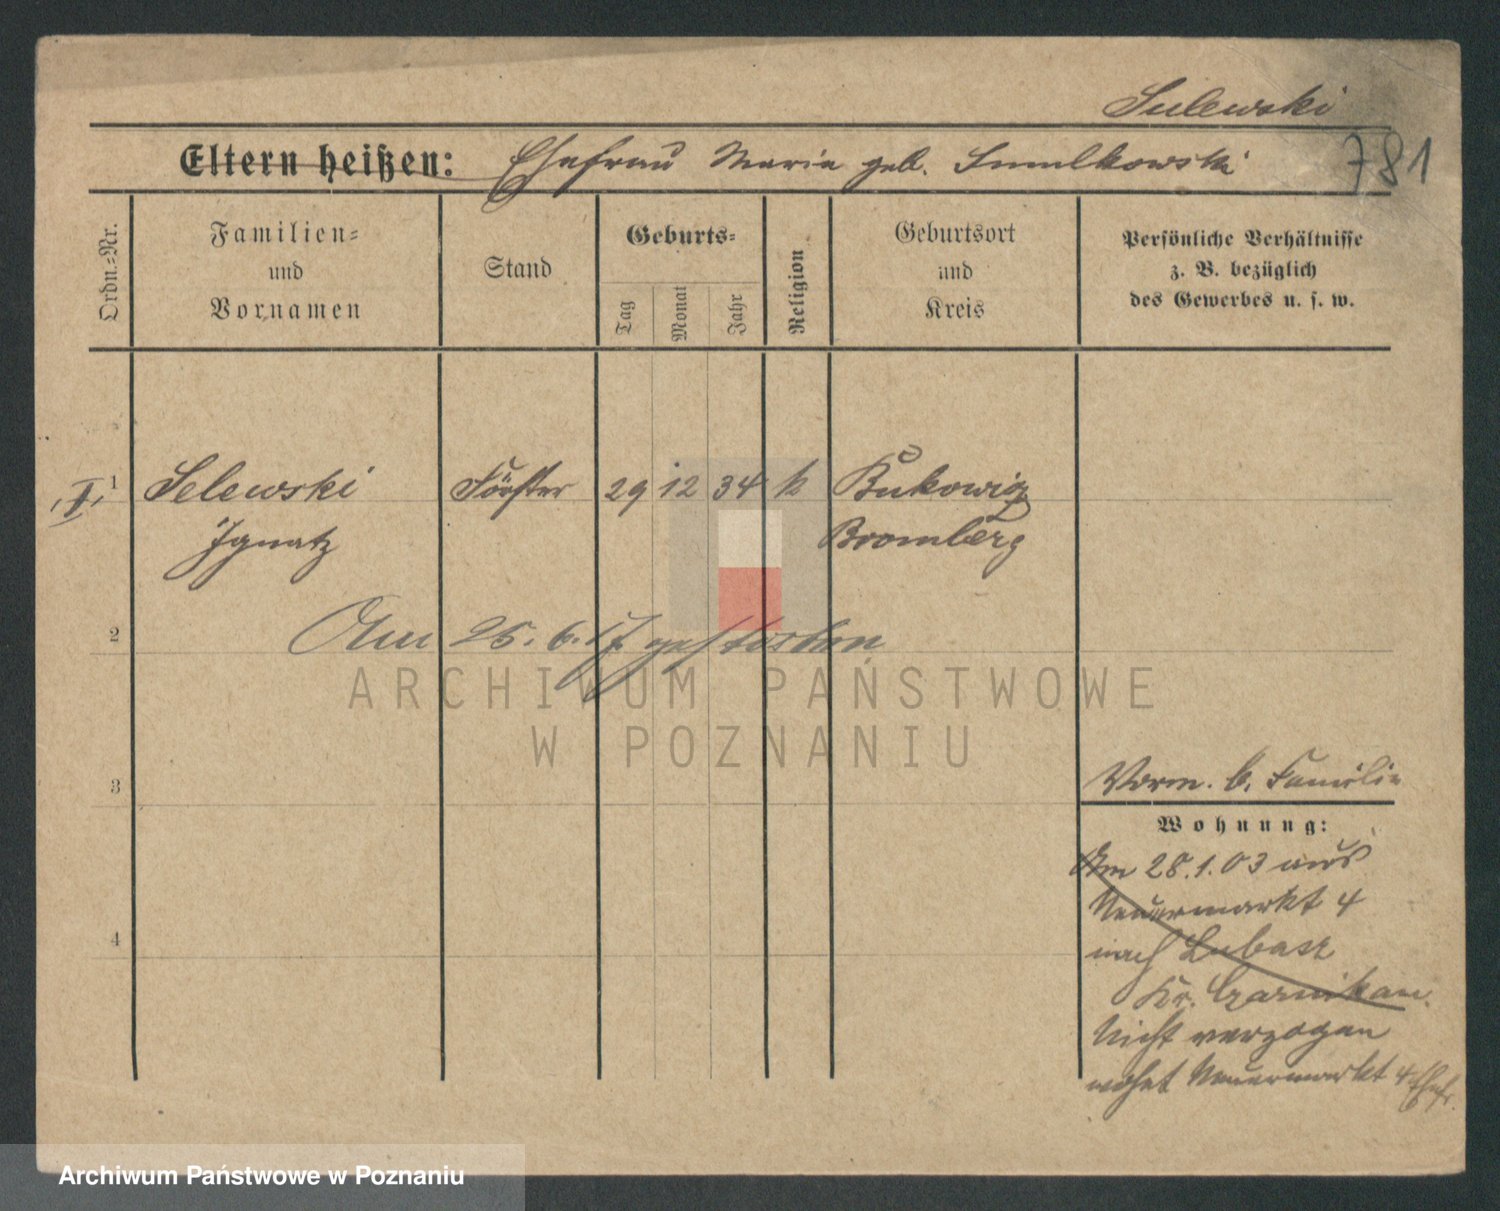 Sulewski
Eltern heißen: Ehefrau Maria geb. Smulkowski
781
Ordn.-Nr.
Familien-
und
Vornamen
Stand
Geburts-
Tag
Monat
Jahr
Religion
Geburtsort
und
Kreis
Persönliche Verhältnisse
z. B. bezüglich
des Gewerbes u. s. w.
I, 1 Selewski Förster 29 12 34 k Bukowiz
Ignatz Bromberg
2 Am 25. 6. 17 gestorben
ARCHIWUM PAŃSTWOWE
W POZNANIU
3
Vorm. b. Familie
Wohnung:
Am 28.1.03 aus
Neuermarkt 4
nach Lubasz
Kr. Czarnikau.
4
Nicht verzogen
wohnt Neuermarkt 4
Archiwum Państwowe w Poznaniu